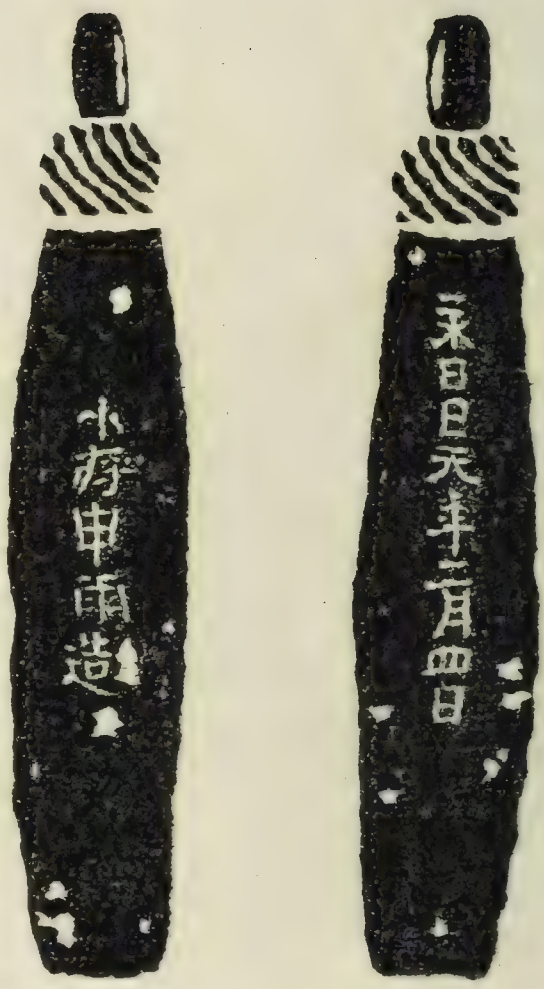 永昌元年三月四日
小府申雨造